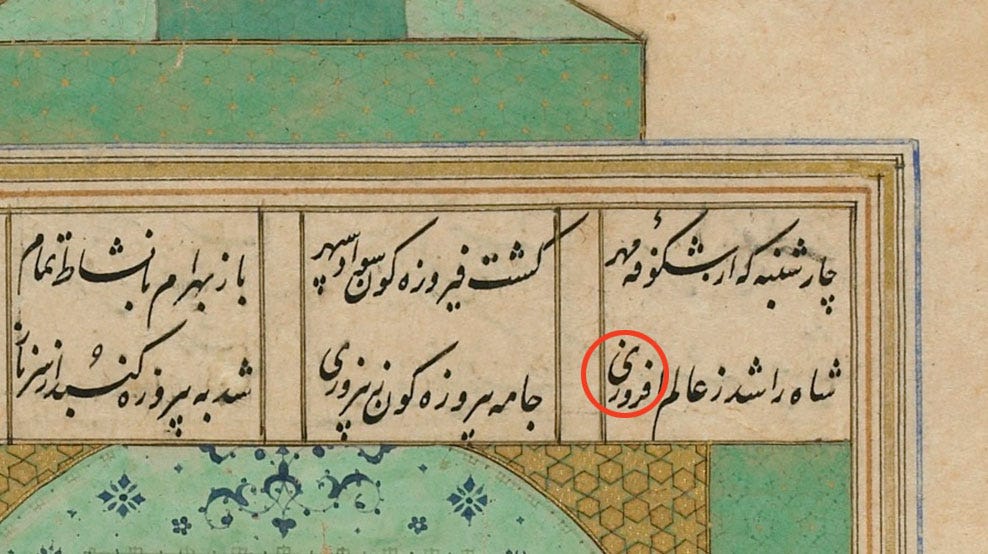 چارشنبه که از شکوفه مهر گشت فیروزه کون سواد سپهر باز بهرام با نشاط تمام
شاه را شد ز عالم افروزی جامه پیروزه کون ز پیروزی شد به پیروزه کنبد از سر ناز